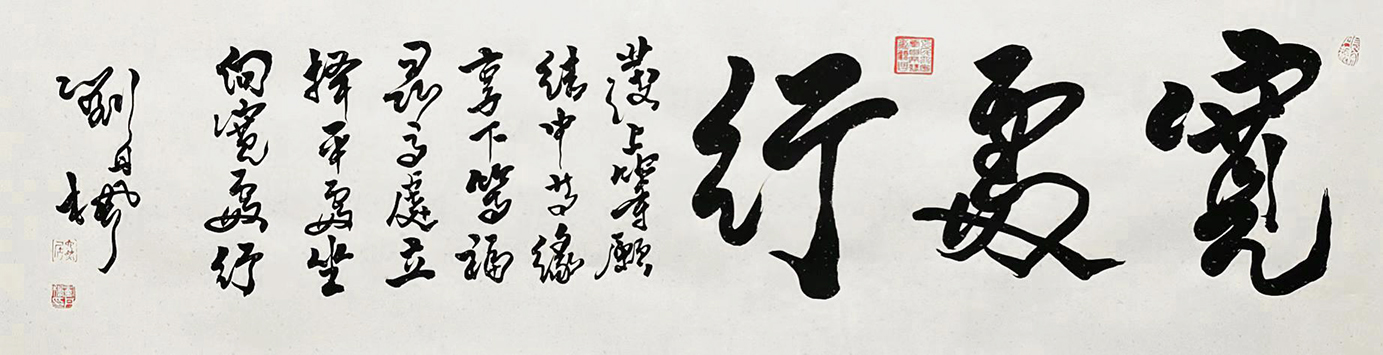 宽处行
发上等愿
结中等缘
享下等福
寻高处立
择平处坐
向宽处行
刘月樵